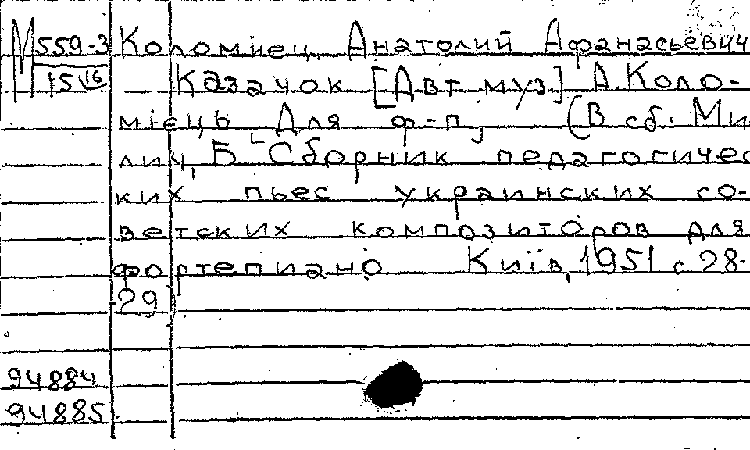 М 559-3 Коломиец, Анатолий Афанасьевич
15 16 — Казачок [Авт муз] А. Коло-
мієць Для ф-п, (В сб. Ми
лич, Б Сборник педагогичес
ких пьес украинских со-
ветских композиторов для
фортепиано Київ, 1951 с 28-
29)
94884
94885